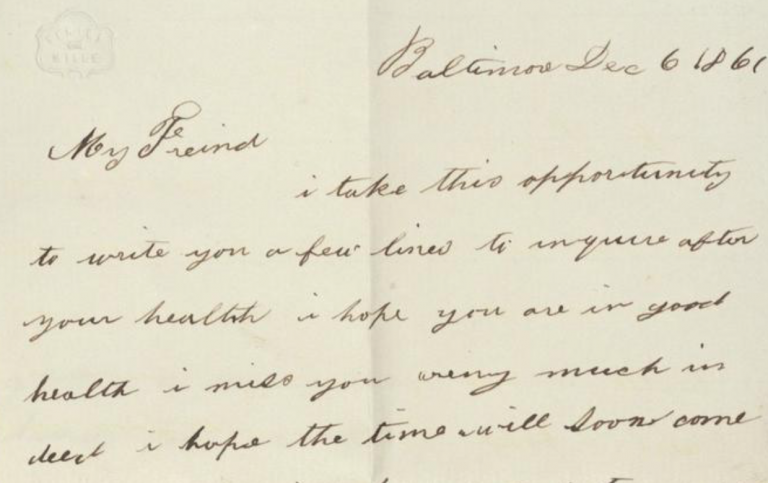 Baltimore Dec 6 1861
My Freind
i take this opportunity
to write you a few lines to inquire after
your health i hope you are in good
health i miss you very much in
deed i hope the time will soon come